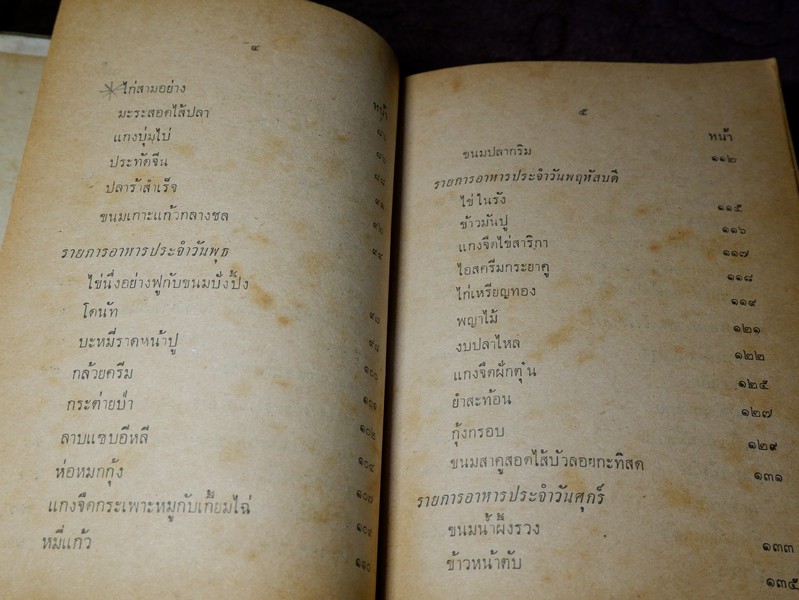 ๔
หน้า
ไก่สามอย่าง ๘๖
มะระสอดไส้ปลา ๘๖
แกงบุ่มไบ่ ๘๘
ประทัดจีน ๙๑
ปลาร้าสำเร็จ ๙๒
ขนมเกาะแก้วกลางชล ๙๔
รายการอาหารประจำวันพุธ
ไข่นึ่งอย่างฟูกับขนมปังปิ้ง ๙๘
โดนัท ๙๘
บะหมี่ราดหน้าปู ๑๐๐
กล้วยครีม ๑๐๑
กระต่ายป่า ๑๐๒
ลาบแซบอีหลี ๑๐๔
ห่อหมกกุ้ง ๑๐๗
แกงจืดกระเพาะหมูกับเกี้ยมไฉ่ ๑๐๙
หมี่แก้ว ๑๑๐
๕
หน้า
ขนมปลากริม ๑๑๒
รายการอาหารประจำวันพฤหัสบดี
ไข่ในรัง ๑๑๕
ข้าวมันปู ๑๑๖
แกงจืดไข่สาริกา ๑๑๗
ไอสครีมกระยาคู ๑๑๘
ไก่เหรียญทอง ๑๑๙
พญาไม้ ๑๒๑
งบปลาไหล ๑๒๒
แกงจืดฝักตุ๋น ๑๒๕
ยำสะท้อน ๑๒๗
กุ้งกรอบ ๑๒๙
ขนมสาคูสอดไส้บัวลอยกะทิสด ๑๓๑
รายการอาหารประจำวันศุกร์
ขนมน้ำผึ้งรวง ๑๓๓
ข้าวหน้าตับ ๑๓๕